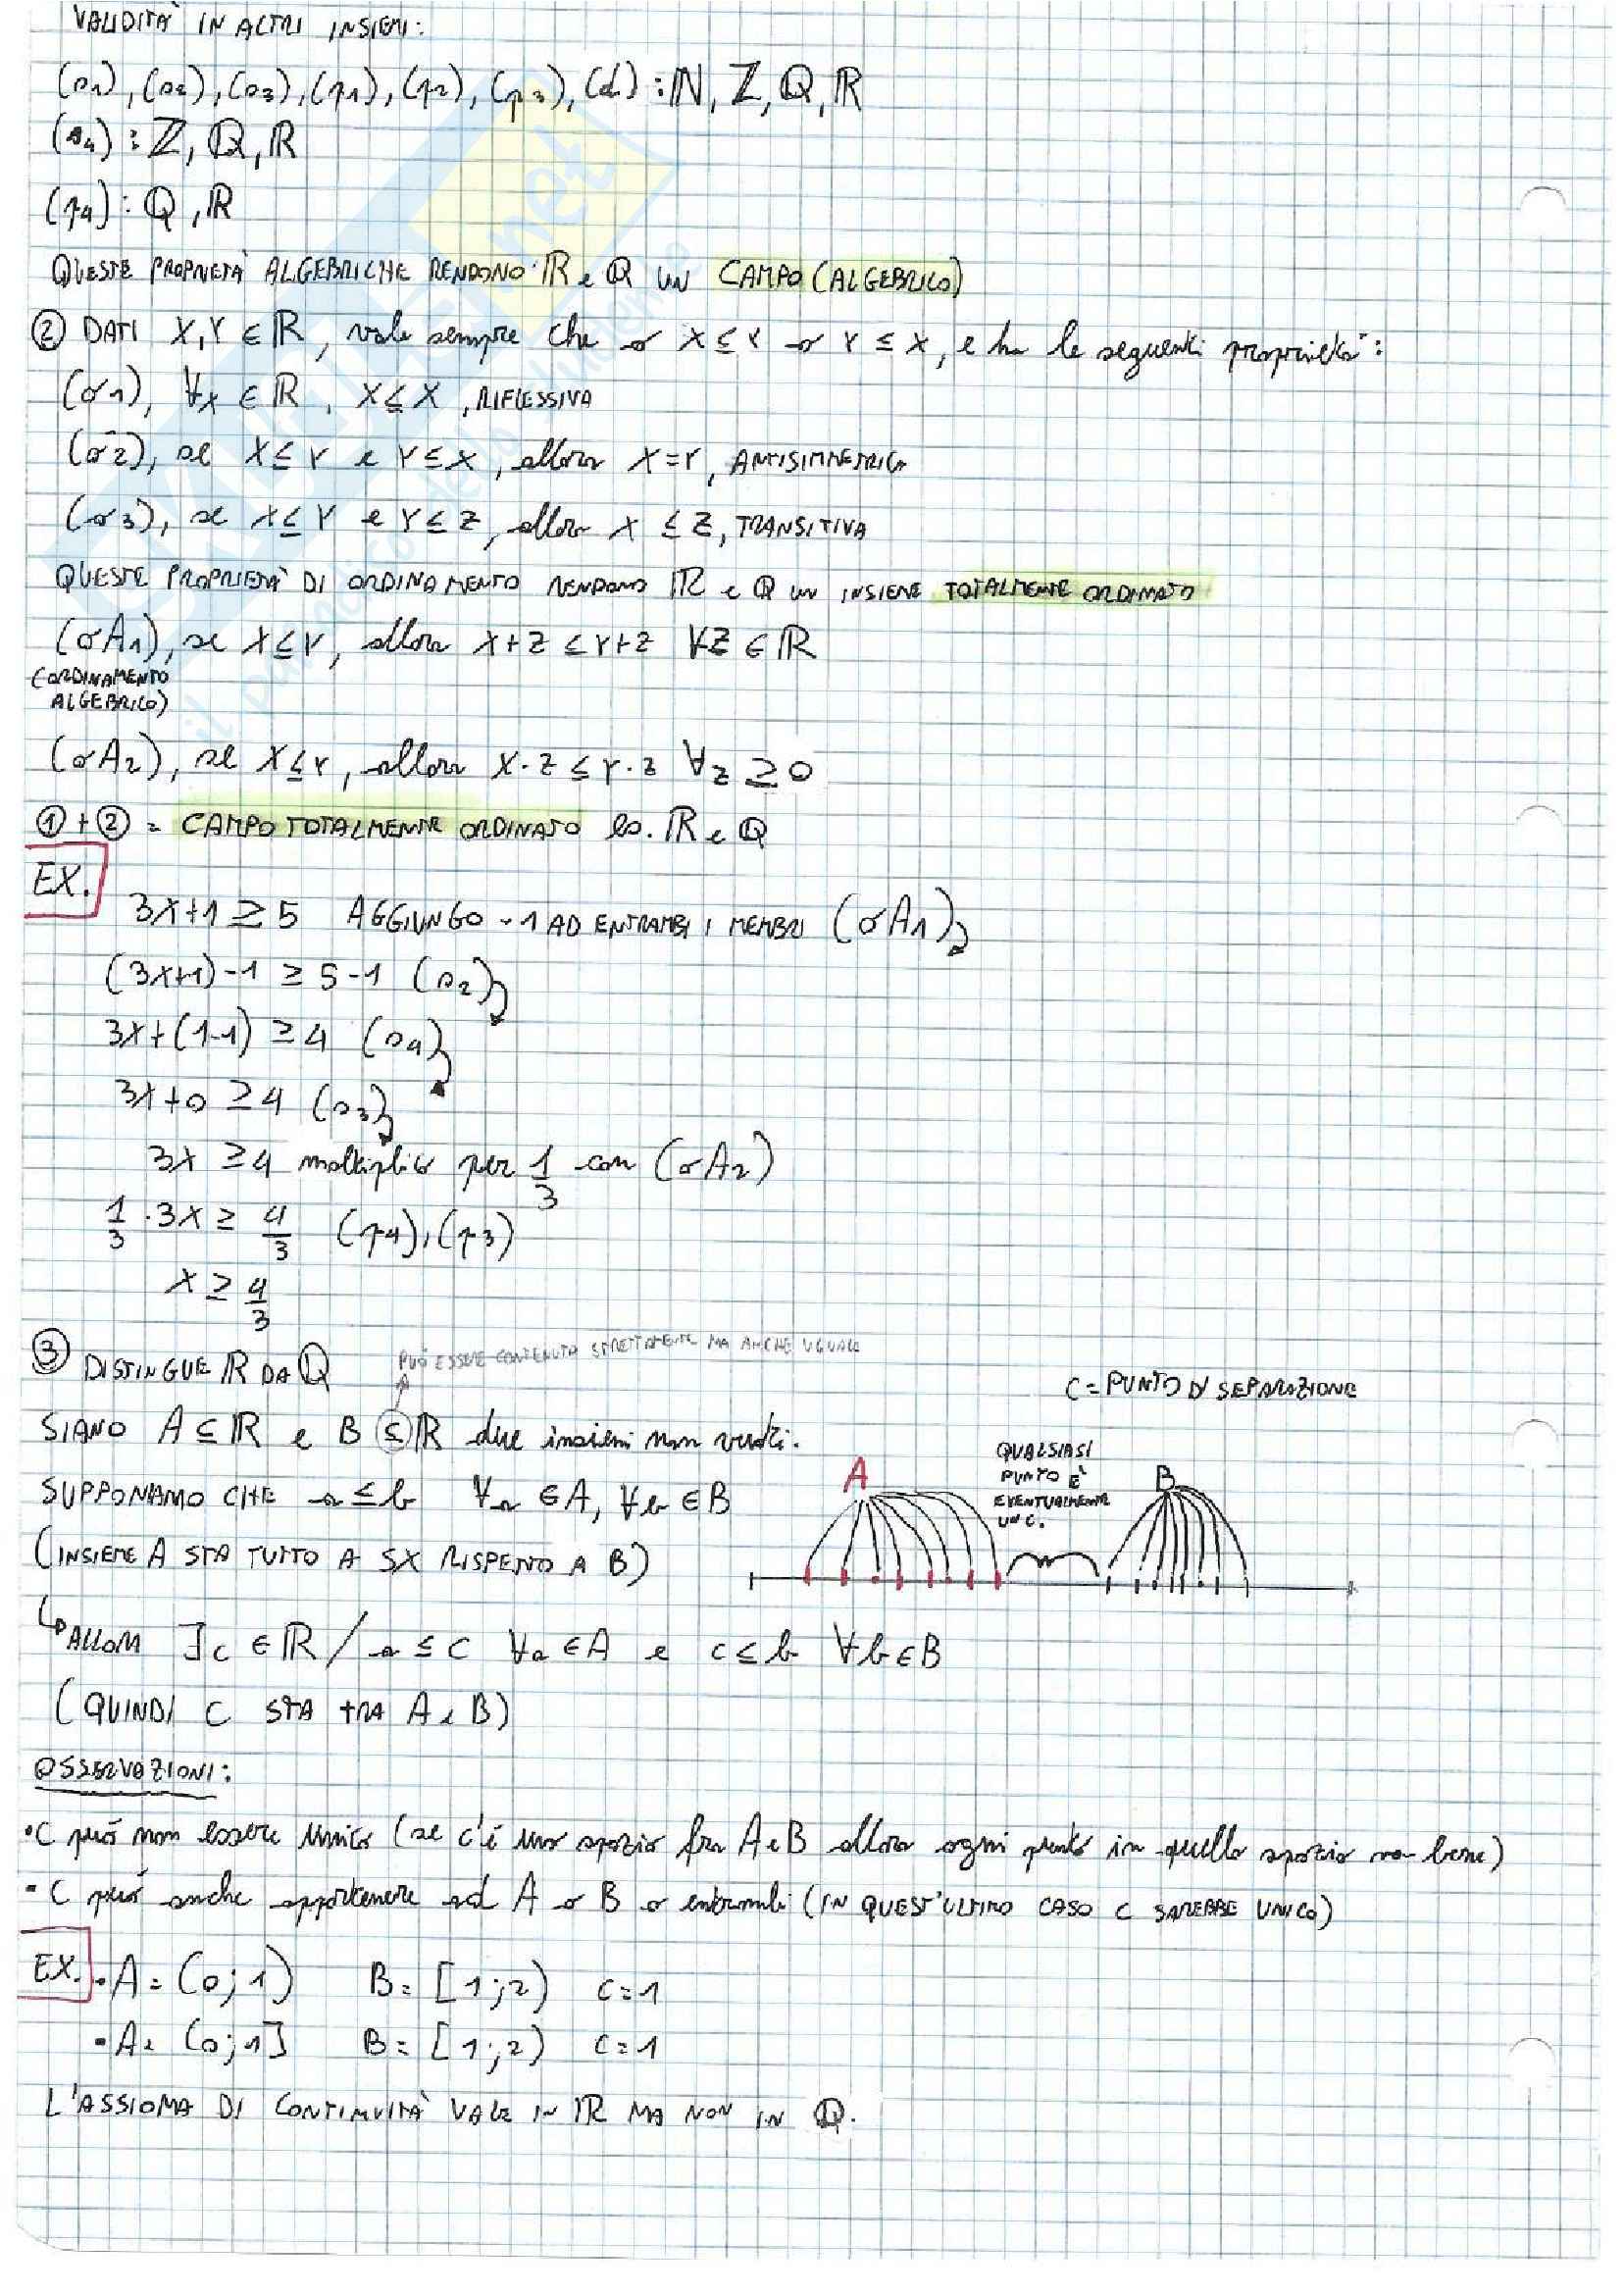 VALIDITÀ IN ALTRI INSIEMI:
(s1), (s2), (s3), (p1), (p2), (p3), (d) : ℕ, ℤ, ℚ, ℝ
(s4) : ℤ, ℚ, ℝ
(p4) : ℚ, ℝ
QUESTE PROPRIETÀ ALGEBRICHE RENDONO ℝ e ℚ UN CAMPO (ALGEBRICO)
② DATI X, Y ∈ ℝ, vale sempre che o X ≤ Y o Y ≤ X, e ha le seguenti proprietà:
(σ1), ∀x ∈ ℝ, X ≤ X, RIFLESSIVA
(σ2), se X ≤ Y e Y ≤ X, allora X = Y, ANTISIMMETRICA
(σ3), se X ≤ Y e Y ≤ Z, allora X ≤ Z, TRANSITIVA
QUESTE PROPRIETÀ DI ORDINAMENTO RENDONO ℝ e ℚ UN INSIEME TOTALMENTE ORDINATO
(σA1), se X ≤ Y, allora X + Z ≤ Y + Z ∀Z ∈ ℝ
(ORDINAMENTO
ALGEBRICO)
(σA2), se X ≤ Y, allora X · Z ≤ Y · Z ∀Z ≥ 0
① + ② = CAMPO TOTALMENTE ORDINATO es. ℝ e ℚ
EX.
3X+1 ≥ 5 AGGIUNGO -1 AD ENTRAMBI I MEMBRI (σA1)
(3X+1)-1 ≥ 5-1 (s2)
3X+(1-1) ≥ 4 (s4)
3X+0 ≥ 4 (s3)
3X ≥ 4 moltiplico per 1/3 con (σA2)
1/3 · 3X ≥ 4/3 (p4), (p3)
X ≥ 4/3
③ DISTINGUE ℝ DA ℚ
PUÒ ESSERE CONTENUTO STRETTAMENTE MA ANCHE UGUALE
C = PUNTO DI SEPARAZIONE
SIANO A ⊆ ℝ e B ⊆ ℝ due insiemi non vuoti.
SUPPONIAMO CHE a ≤ b ∀a ∈ A, ∀b ∈ B
(INSIEME A STA TUTTO A SX RISPETTO A B)
A
QUALSIASI
PUNTO È
EVENTUALMENTE
UN C.
B
↳ ALLORA ∃c ∈ ℝ / a ≤ c ∀a ∈ A e c ≤ b ∀b ∈ B
(QUINDI C STA TRA A e B)
OSSERVAZIONI:
• C può non essere unico (se c'è uno spazio fra A e B allora ogni punto in quello spazio va bene)
• C può anche appartenere ad A o B o entrambi (IN QUEST'ULTIMO CASO C SAREBBE UNICO)
EX. • A = (0; 1) B = [1; 2) C = 1
• A = (0; 1] B = [1; 2) C = 1
L'ASSIOMA DI CONTINUITÀ VALE IN ℝ MA NON IN ℚ.